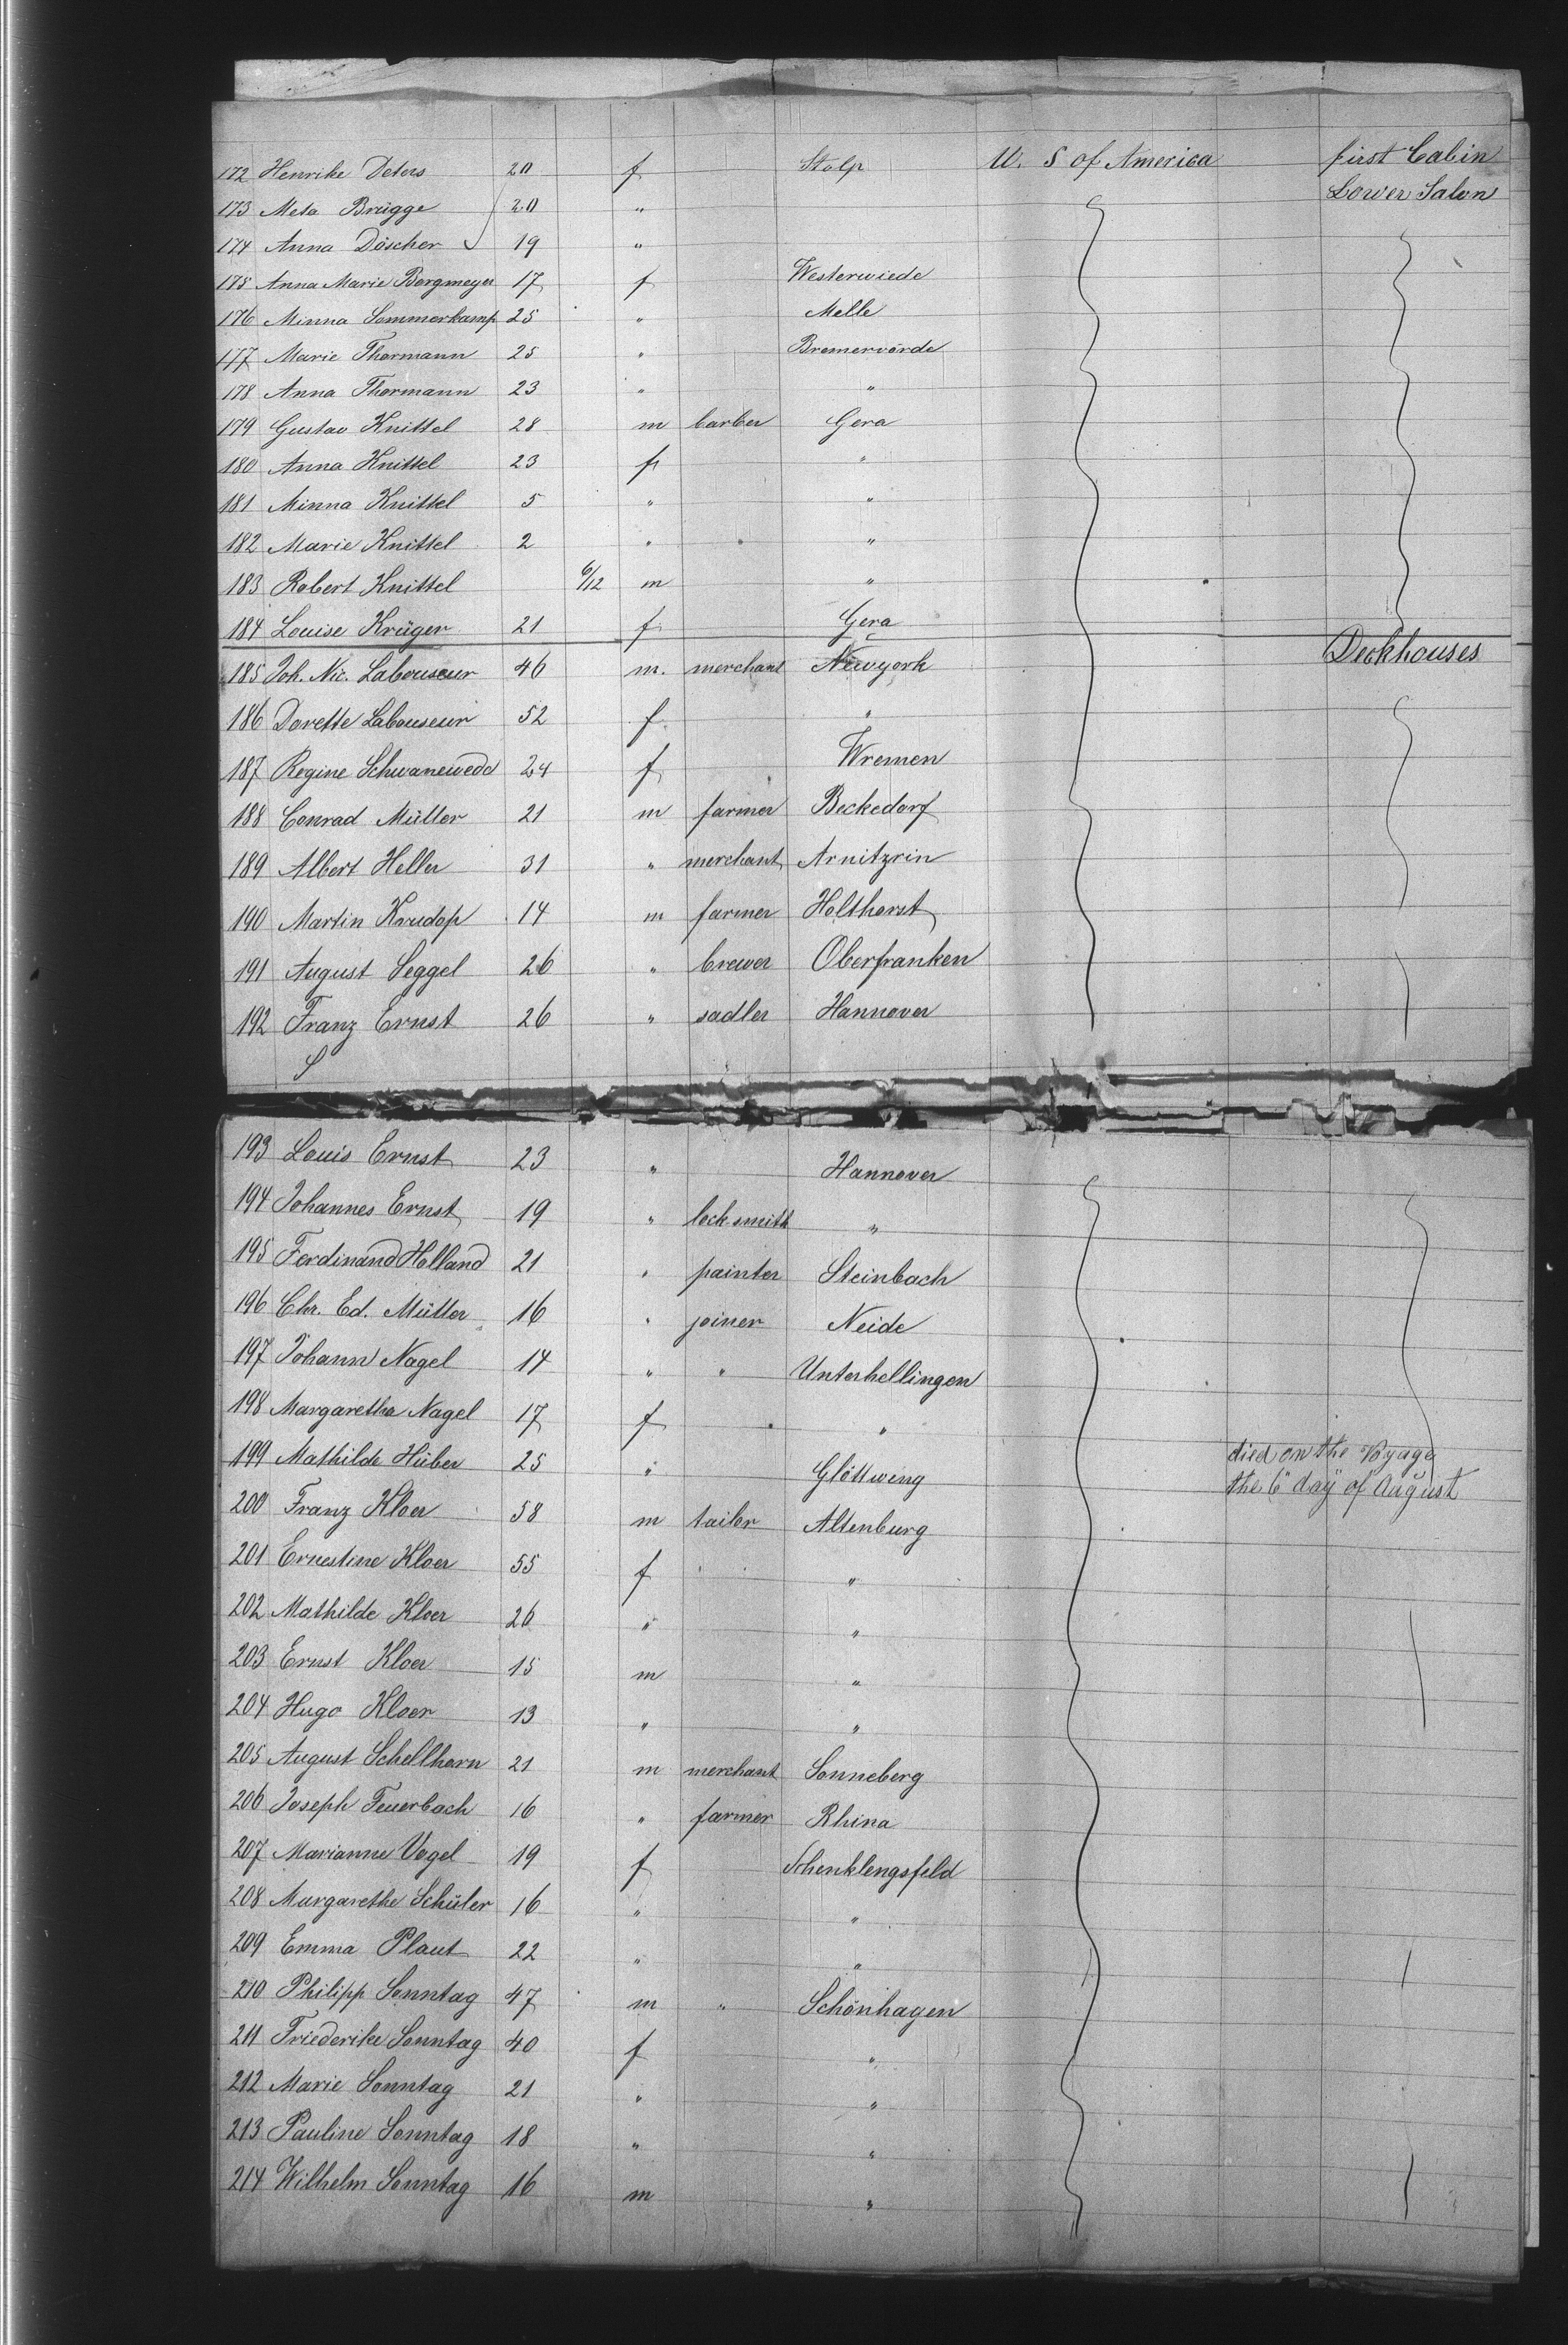 172 Henrike Deters 20 f Stolp U. S of America first Cabin
Lower Salon
173 Meta Brügge 20 "
174 Anna Döscher 19 "
175 Anna Marie Bergmeyer 17 f Westerwiede
176 Minna Sommerkamp 25 " Melle
177 Marie Thormann 25 " Bremervörde
178 Anna Thormann 23 " "
179 Gustav Knittel 28 m barber Gera
180 Anna Knittel 23 f "
181 Minna Knittel 5 " "
182 Marie Knittel 2 " "
183 Robert Knittel 6/12 m "
184 Louise Krüger 21 f Gera
Deckhouses
185 Joh. Nic. Labouseur 46 m. merchant Newyork
186 Dorette Labouseur 52 f "
187 Regine Schwanewede 24 f Wremen
188 Conrad Müller 21 m farmer Beckedorf
189 Albert Heller 31 " merchant Arnitzrin
190 Martin Krudop 14 m farmer Holthorst
191 August Seggel 26 " brewer Oberfranken
192 Franz Ernst 26 " sadler Hannover
193 Louis Ernst 23 " Hannover
194 Johannes Ernst 19 " locksmith "
195 Ferdinand Holland 21 " painter Steinbach
196 Chr. Ed. Müller 16 " joiner Neide
197 Johann Nagel 14 " " Unterhellingen
198 Margaretha Nagel 17 f "
199 Mathilde Hüber 25 " Glöttweng died on the Voyage
the 6" day of August
200 Franz Kloer 58 m tailor Altenburg
201 Ernestine Kloer 55 f "
202 Mathilde Kloer 26 " "
203 Ernst Kloer 15 m "
204 Hugo Kloer 13 " "
205 August Schellhorn 21 m merchant Sonneberg
206 Joseph Feuerbach 16 " farmer Rhina
207 Marianne Vogel 19 f Schenklengsfeld
208 Margarethe Schüler 16 " "
209 Emma Plaut 22 " "
210 Philipp Sonntag 47 m " Schönhagen
211 Friederike Sonntag 40 f "
212 Marie Sonntag 21 " "
213 Pauline Sonntag 18 " "
214 Wilhelm Sonntag 16 m "